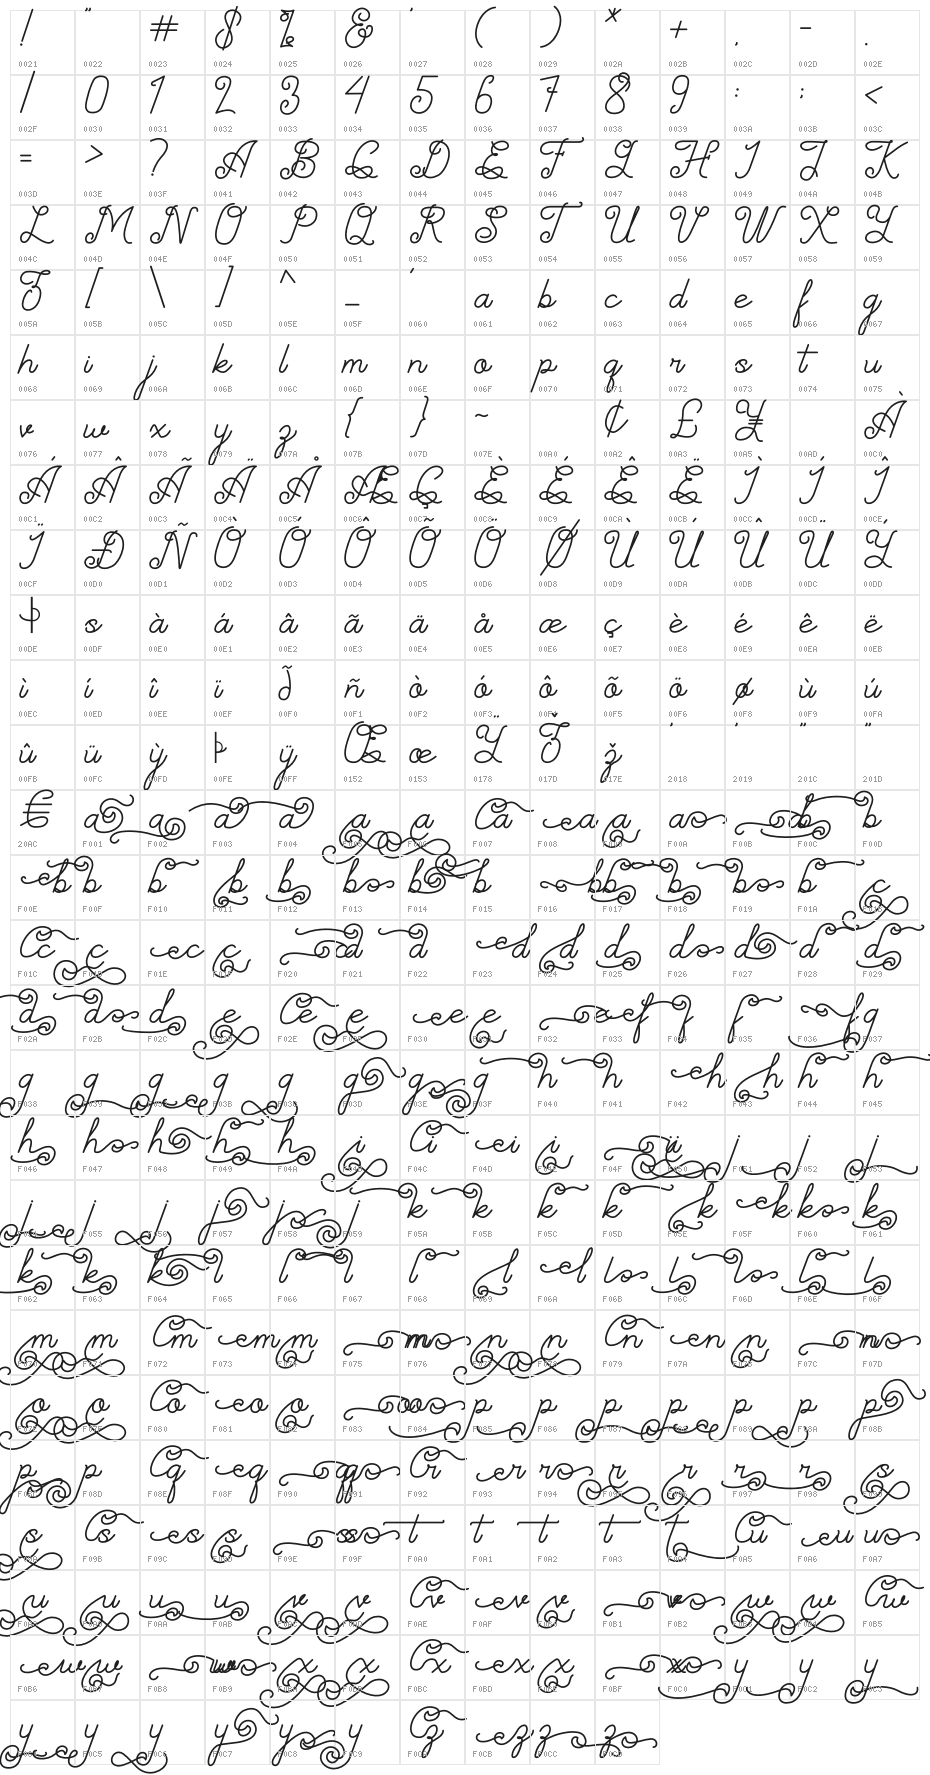 ! " # $ % & ' ( ) * + , - .
0021 0022 0023 0024 0025 0026 0027 0028 0029 002A 002B 002C 002D 002E
/ 0 1 2 3 4 5 6 7 8 9 : ; <
002F 0030 0031 0032 0033 0034 0035 0036 0037 0038 0039 003A 003B 003C
= > ? A B C D E F G H I J K
003D 003E 003F 0041 0042 0043 0044 0045 0046 0047 0048 0049 004A 004B
L M N O P Q R S T U V W X Y
004C 004D 004E 004F 0050 0051 0052 0053 0054 0055 0056 0057 0058 0059
Z [ \ ] ^ _ ` a b c d e f g
005A 005B 005C 005D 005E 005F 0060 0061 0062 0063 0064 0065 0066 0067
h i j k l m n o p q r s t u
0068 0069 006A 006B 006C 006D 006E 006F 0070 0071 0072 0073 0074 0075
v w x y z { } ~ ¢ £ ¥ À
0076 0077 0078 0079 007A 007B 007D 007E 00A0 00A2 00A3 00A5 00AD 00C0
Á Â Ã Ä Å Æ Ç È É Ê Ë Ì Í Î
00C1 00C2 00C3 00C4 00C5 00C6 00C7 00C8 00C9 00CA 00CB 00CC 00CD 00CE
Ï Ð Ñ Ò Ó Ô Õ Ö Ø Ù Ú Û Ü Ý
00CF 00D0 00D1 00D2 00D3 00D4 00D5 00D6 00D8 00D9 00DA 00DB 00DC 00DD
Þ s à á â ã ä å æ ç è é ê ë
00DE 00DF 00E0 00E1 00E2 00E3 00E4 00E5 00E6 00E7 00E8 00E9 00EA 00EB
ì í î ï ð ñ ò ó ô õ ö ø ù ú
00EC 00ED 00EE 00EF 00F0 00F1 00F2 00F3 00F4 00F5 00F6 00F8 00F9 00FA
û ü ý þ ÿ Œ œ Ÿ Ž ž ‘ ’ “ ”
00FB 00FC 00FD 00FE 00FF 0152 0153 0178 017D 017E 2018 2019 201C 201D
€ a a a a a a a a a a b b
20AC F001 F002 F003 F004 F005 F006 F007 F008 F009 F00A F00B F00C F00D
b b b b b b b b b b b b b c
F00E F00F F010 F011 F012 F013 F014 F015 F016 F017 F018 F019 F01A F01B
c c c c d d d d d d d d d
F01C F01D F01E F01F F020 F021 F022 F023 F024 F025 F026 F027 F028 F029
d d d e e e e e f f f f g
F02A F02B F02C F02D F02E F02F F030 F031 F032 F033 F034 F035 F036 F037
g g g g g g g g h h h h h h
F038 F039 F03A F03B F03C F03D F03E F03F F040 F041 F042 F043 F044 F045
h h h h h i i i i i j j j
F046 F047 F048 F049 F04A F04B F04C F04D F04E F04F F050 F051 F052 F053
j j j j j j k k k k k k k k
F054 F055 F056 F057 F058 F059 F05A F05B F05C F05D F05E F05F F060 F061
k k k l l l l l l l l l l l
F062 F063 F064 F065 F066 F067 F068 F069 F06A F06B F06C F06D F06E F06F
m m m m m m n n n n n n
F070 F071 F072 F073 F074 F075 F076 F077 F078 F079 F07A F07B F07C F07D
o o o o o o p p p p p p p
F07E F07F F080 F081 F082 F083 F084 F085 F086 F087 F088 F089 F08A F08B
p p q q q r r r r r r r s
F08C F08D F08E F08F F090 F091 F092 F093 F094 F095 F096 F097 F098 F099
s s s s s t t t t t u u u
F09A F09B F09C F09D F09E F09F F0A0 F0A1 F0A2 F0A3 F0A4 F0A5 F0A6 F0A7
u u u u v v v v v v w w w
F0A8 F0A9 F0AA F0AB F0AC F0AD F0AE F0AF F0B0 F0B1 F0B2 F0B3 F0B4 F0B5
w w w x x x x x x y y y
F0B6 F0B7 F0B8 F0B9 F0BA F0BB F0BC F0BD F0BE F0BF F0C0 F0C1 F0C2 F0C3
y y y y y y z z z z
F0C4 F0C5 F0C6 F0C7 F0C8 F0C9 F0CA F0CB F0CC F0CD